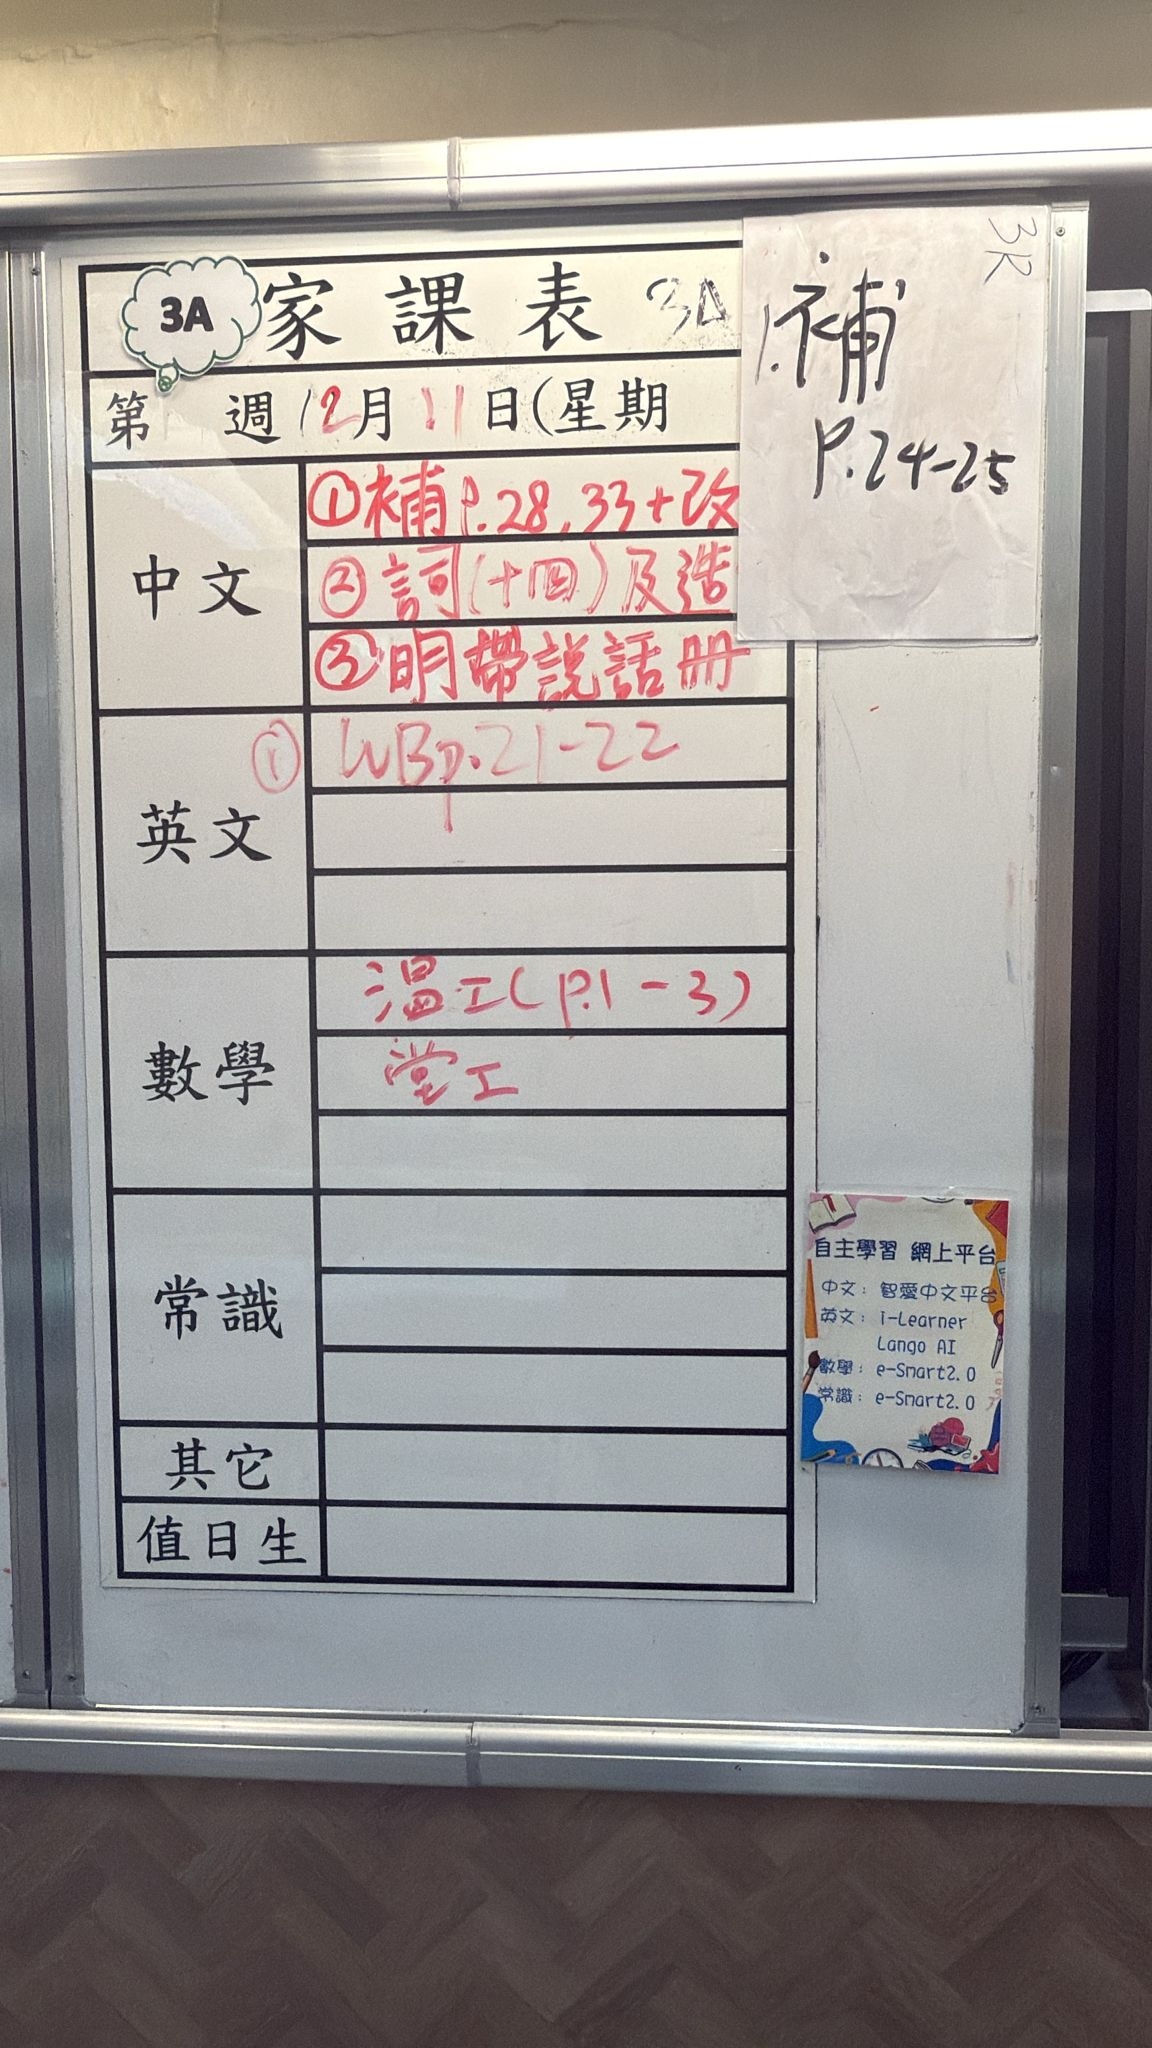 3A 家課表 3A
3R
1.補
P.24-25
第 週 12月 11日(星期
中文
①補P.28,33+改
②詞(十四)及造
③明帶説話冊
英文
① WBp.21-22
數學
溫工(p.1-3)
堂工
常識
其它
值日生
自主學習 網上平台
中文: 智愛中文平台
英文: i-Learner
Lango AI
數學: e-Smart2.0
常識: e-Smart2.0